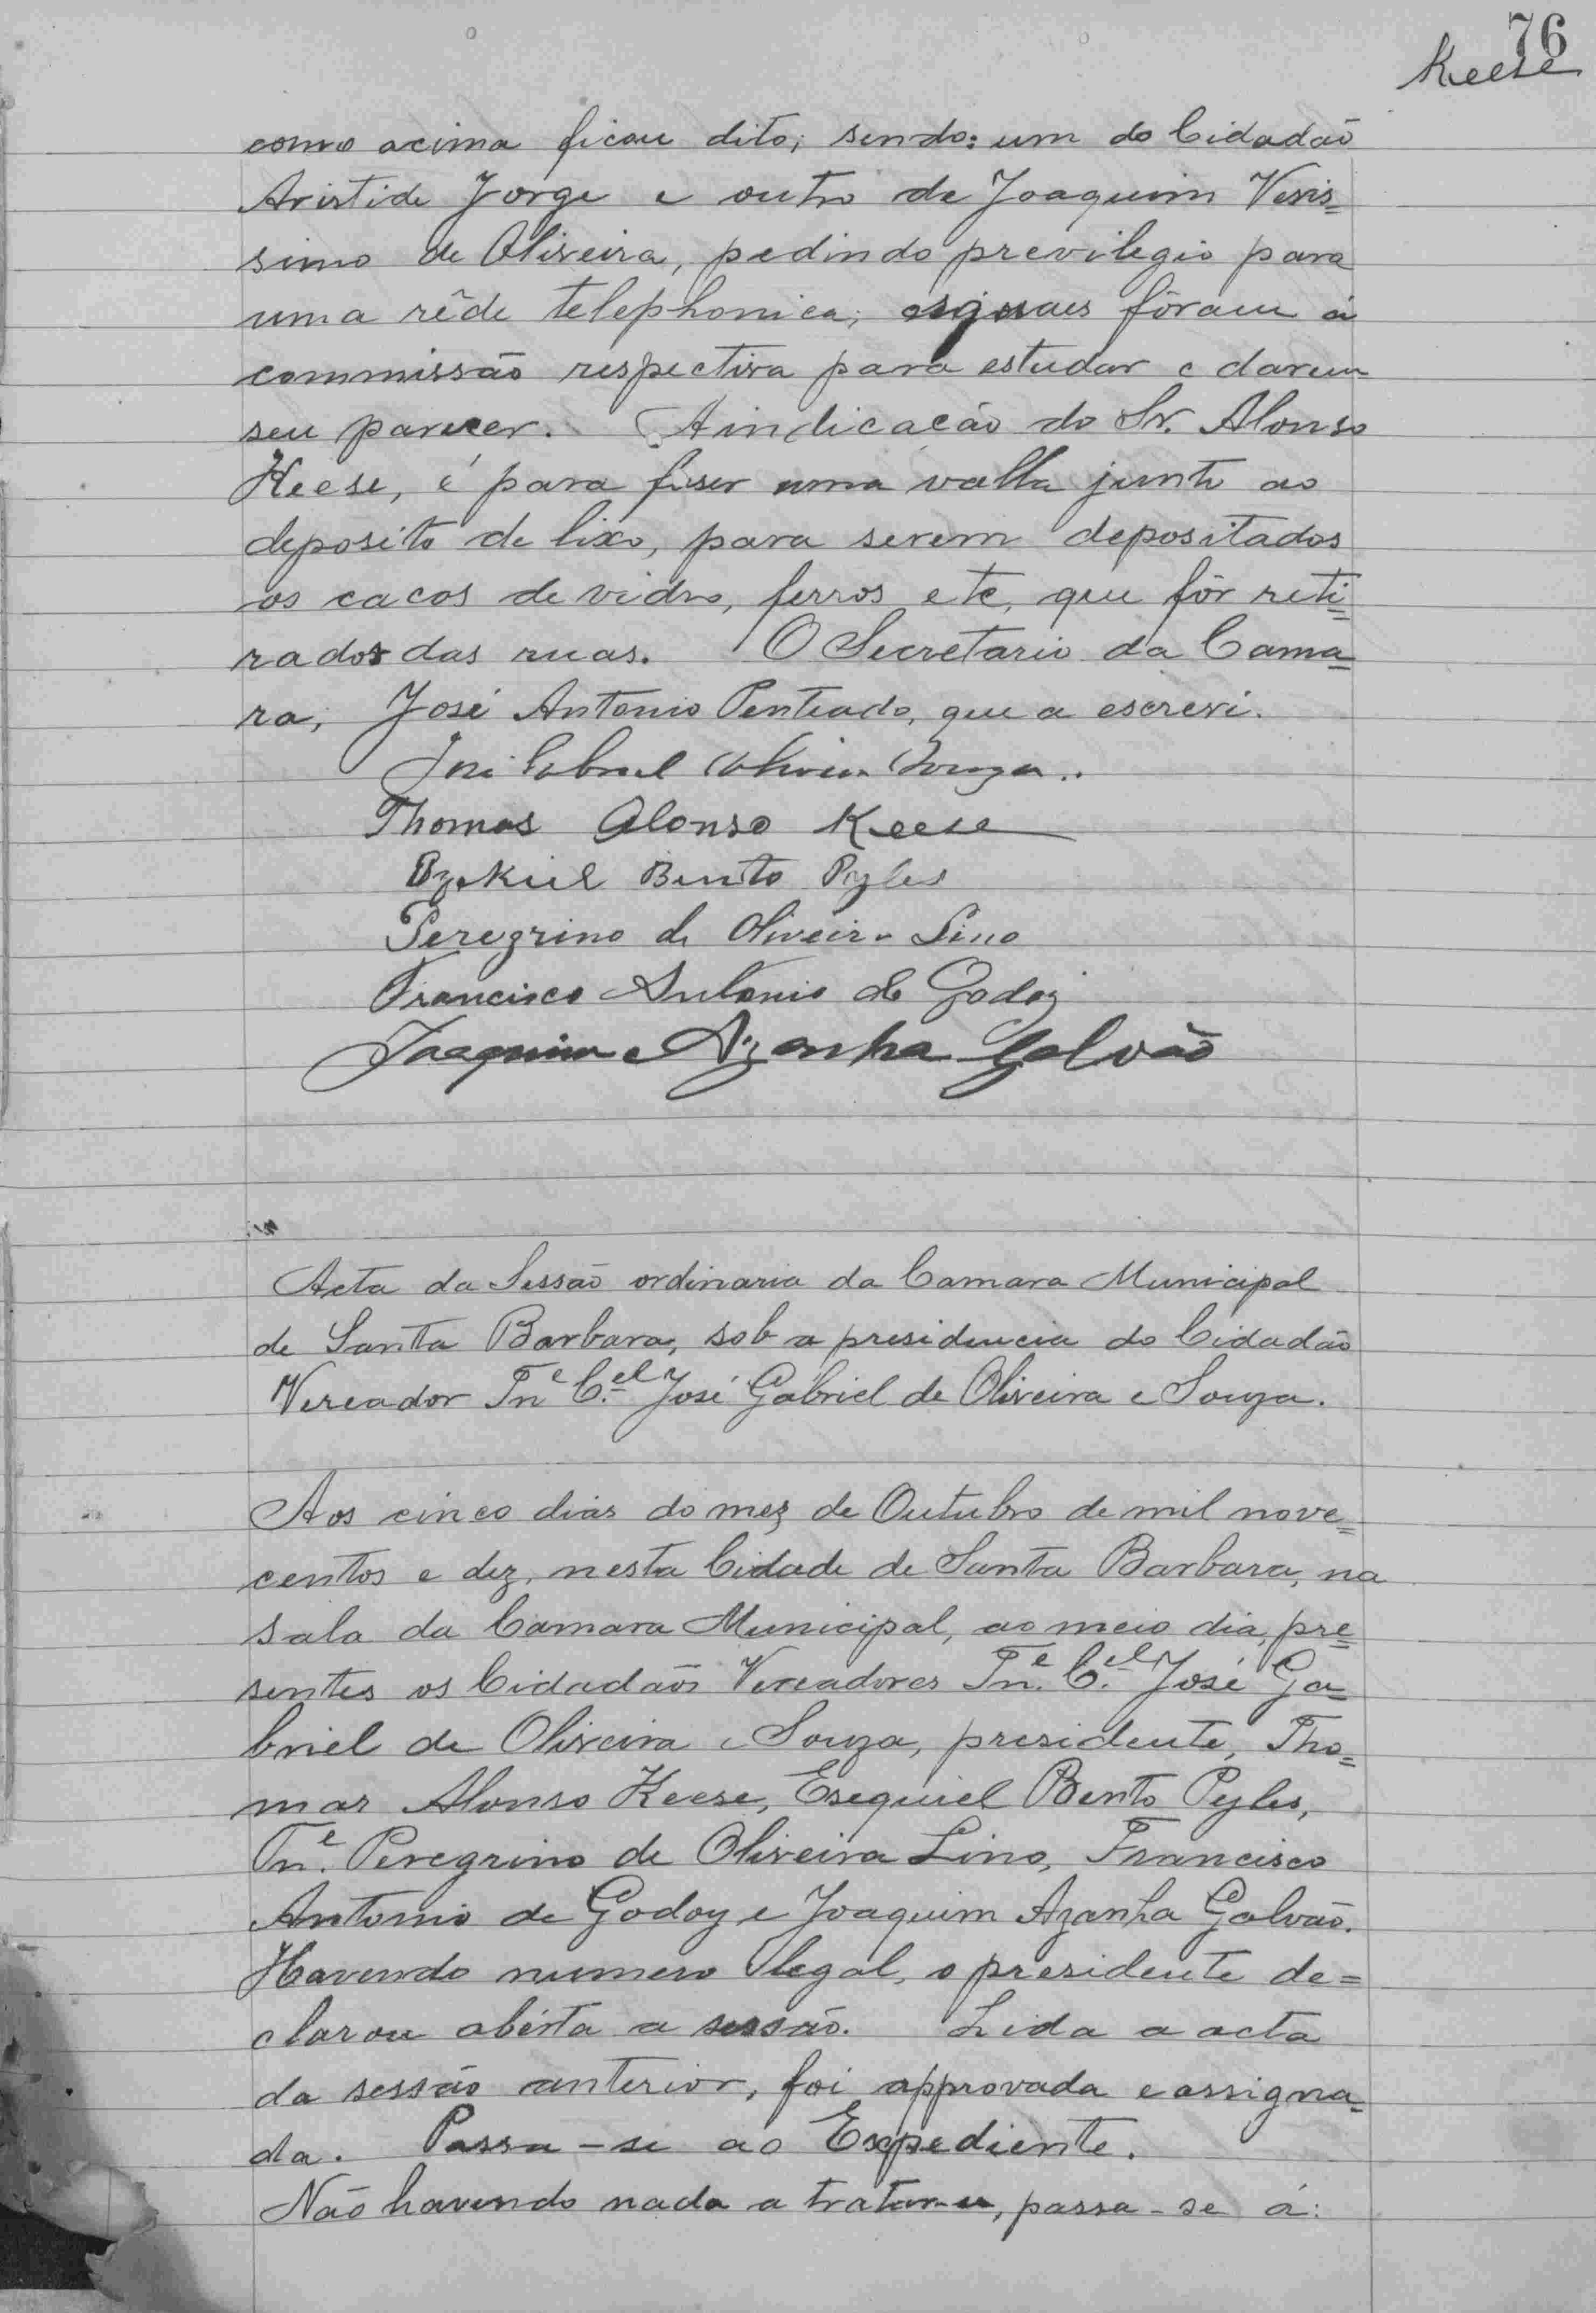 76
Keese
como acima ficou dito; sendo: um do Cidadão
Aristide Jorge e outro de Joaquim Veris=
simo de Oliveira, pedindo previlegio para
uma rêde telephonica; osquaes fôram á
commissão respectiva para estudar e darem
seu parecer. A indicacão do Sr. Alonso
Keese, é para faser uma valla junto ao
deposito de lixo, para serem depositados
os cacos de vidro, ferros etc, que fôr reti=
rados das ruas. O Secretario da Cama=
ra, José Antonio Penteado, que a escrevi.
José Gabriel Oliveira Souza..
Thomas Alonso Keese
Ezekiel Bento Pyles
Peregrino de Oliveira Lino
Francisco Antonio de Godoy
Joaquim Azanha Galvão
Acta da Sessão ordinaria da Camara Municipal
de Santa Barbara, sob a presidencia do Cidadão
Vereador Tn.e C.el José Gabriel de Oliveira e Souza.
Aos cinco dias do mez de Outubro de mil nove=
centos e dez, nesta Cidade de Santa Barbara, na
sala da Camara Municipal, ao meio dia, pre=
sentes os Cidadãos Vereadores Tn.e C.el José Ga=
briel de Oliveira e Souza, presidente, Tho=
mas Alonso Keese, Esequiel Bento Pyles,
Tn.e Peregrino de Oliveira Lino, Francisco
Antonio de Godoy e Joaquim Azanha Galvão.
Havendo numero legal, o presidente de=
clarou abérta a sessão. Lida a acta
da sessão anterior, foi approvada e assigna=
da. Passa-se ao Expediente.
Não havendo nada a tratar-se, passa-se á: